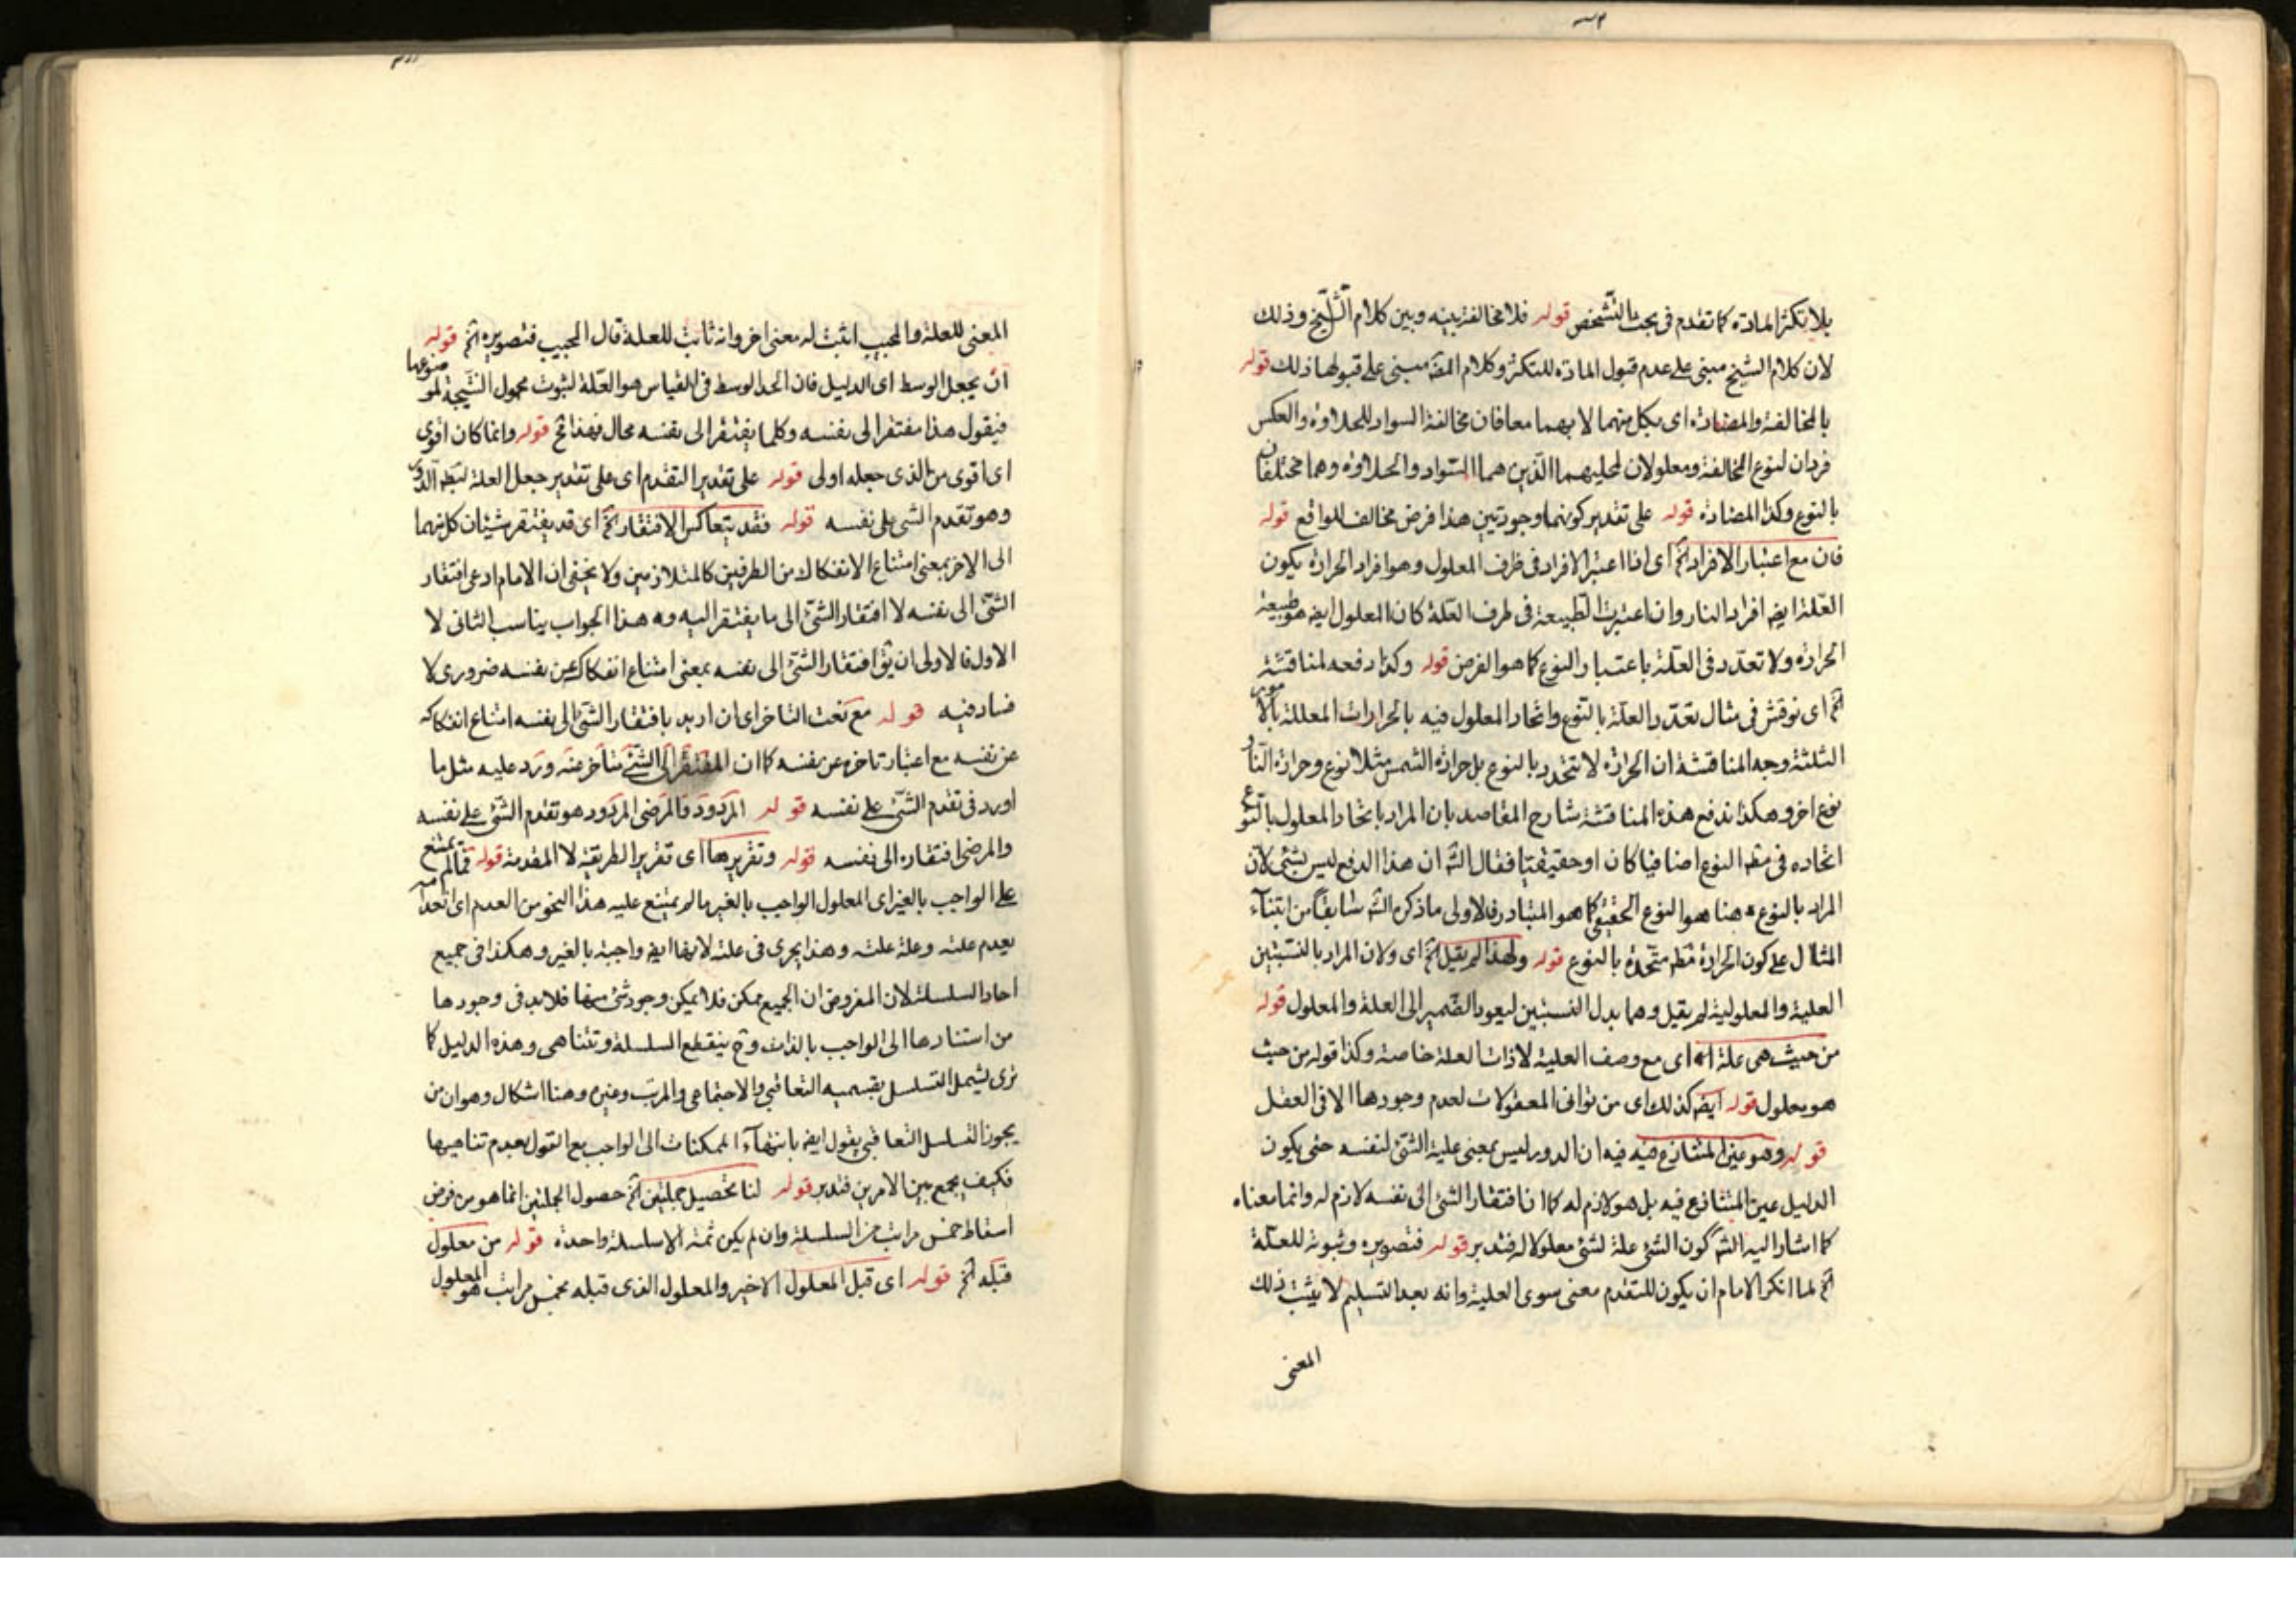 بلا تكثر المادة كما تقدم فى بحث التشخص قوله فلا مخالفة بينه وبين كلام الشيخ وذلك
لان كلام الشيخ مبنى على عدم قبول المادة للتكثر وكلام المصه مبنى على قبولها ذلك قوله
بالمخالفة والمضادة اى بكل منهما لا بهما معا فان مخالفة السواد للحلاوة والعكس
فردان لنوع المخالفة ومعلولان لمحليهما الذين هما السواد والحلاوة وهما مختلفان
بالنوع وكذا المضادة قوله على تقدير كونهما وجوديتين هذا فرض مخالف للواقع قوله
فان مع اعتبار الافراد الخ اى اذا اعتبر الافراد فى طرف المعلول وهو افراد الحرارة يكون
العلة ايضه افراد النار وان اعتبرت الطبيعة فى طرف العلة كان المعلول ايضه هو طبيعة
الحرارة ولا تعدد فى العلة باعتبار النوع كما هو الفرض قوله وكذا دفعه لمناقشة
الخ اى نوقش فى مثال تعدد العلة بالنوع واتحاد المعلول فيه بالحرارات المعللة بالامور
الثلثة وجه المناقشة ان الحرارة لا تتحد بالنوع بل حرارة الشمس مثلا نوع وحرارة النار
نوع اخر وهكذا ندفع هذه المناقشة شارح المقاصد بان المراد باتحاد المعلول بالنوع
اتحاده فى مطه النوع اضافيا كان او حقيقيا فقال الشه ان هذا الدفع ليس بشئ لان
المراد بالنوع ههنا هو النوع الحقيقى كما هو المتبادر فالاولى ما ذكره الشه سابقا من ابتناء
المثال على كون الحرارة مطه متحدة بالنوع قوله ولهذا لم يقل الخ اى ولان المراد بالنسبتين
العلية والمعلولية لم يقل وهما بدل النسبتين ليعود الضمير الى العلة والمعلول قوله
من حيث هى علة اه اى مع وصف العلية لا ذات العلة خاصة وكذا قوله من حيث
هو معلول قوله ايضه كذلك اى من ثوانى المعقولات لعدم وجودها الا فى العقل
قوله وهو عين المتنازع فيه فيه ان الدور ليس بمعنى علية الشئ لنفسه حتى يكون
الدليل عين المتنازع فيه بل هو لازم له كما ان افتقار الشئ الى نفسه لازم له وانما معناه
كما اشار اليه الشه كون الشئ علة لشئ معلولا له فتدبر قوله فتصويره وثبوته للعلة
الخ لما انكر الامام ان يكون للتقدم معنى سوى العلية وانه بعد التسليم لا يثبت ذلك
المعنى
المعنى للعلة والمجيب اثبت له معنى اخر وانه ثابت للعلة قال المجيب فتصويره الخ قوله
ان يجعل الوسط اى الدليل فان الحد الوسط فى القياس هو العلة لثبوت محمول النتيجة لموضوعها
فيقول هذا مفتقر الى نفسه وكلما يفتقر الى نفسه محال فهذا مح قوله وانما كان اقوى
اى اقوى من الذى جعله اولى قوله على تقدير التقدم اى على تقدير جعل العلة لبطه الدور
وهو تقدم الشى على نفسه قوله فقد يتعاكس الافتقار الخ اى قد يفتقر شيئان كل منهما
الى الاخر بمعنى امتناع الانفكاك من الطرفين كالمتلازمين ولا يخفى ان الامام ادعى افتقار
الشئ الى نفسه لا افتقار الشئ الى ما يفتقر اليه وه هذا الجواب يناسب الثانى لا
الاول فالاولى ان يقا افتقار الشئ الى نفسه بمعنى امتناع انفكاكه عن نفسه ضرورى لا
فساد فيه قوله مع نعت التاخر اى ان اريد بافتقار الشئ الى نفسه امتناع انفكاكه
عن نفسه مع اعتبار تاخره عن نفسه كما ان المفتقر الى الشئ متأخر عنه ورد عليه مثل ما
اورد فى تقدم الشئ على نفسه قوله المردود فالمرضى المردود هو تقدم الشئ على نفسه
والمرضى افتقاره الى نفسه قوله وتقريرها اى تقرير الطريقة لا المقدمة قوله فما لم يمتنع
على الواجب بالغير اى المعلول الواجب بالغير ما لم يمتنع عليه هذا النحو من العدم اى انعدامه
بعدم علته وعلة علته وهذا يجرى فى علته لانها ايضه واجبة بالغير وهكذا فى جميع
احاد السلسلة لان المفروض ان الجميع ممكن فلا يمكن وجود شئ منها فلابد فى وجودها
من استنادها الى الواجب بالذات وح ينقطع السلسلة وتتناهى وهذه الدليل كما
ترى يشمل التسلسل بقسميه التعاقبى والاجتماعى والمرتب وغيره وهنا اشكال وهو ان من
يجوز التسلسل التعاقبى يقول ايضه بانتهاء الممكنات الى الواجب مع القول بعدم تناهيها
فكيف يجمع بين الامرين فتدبر قوله لنا تحصيل جملتين الخ حصول الجملتين انما هو من فرض
اسقاط خمس مراتب من السلسلة وان لم يكن ثمة الا سلسلة واحدة قوله من معلول
قبله الخ قوله اى قبل المعلول الاخير والمعلول الذى قبله بخمس مراتب هو المعلول